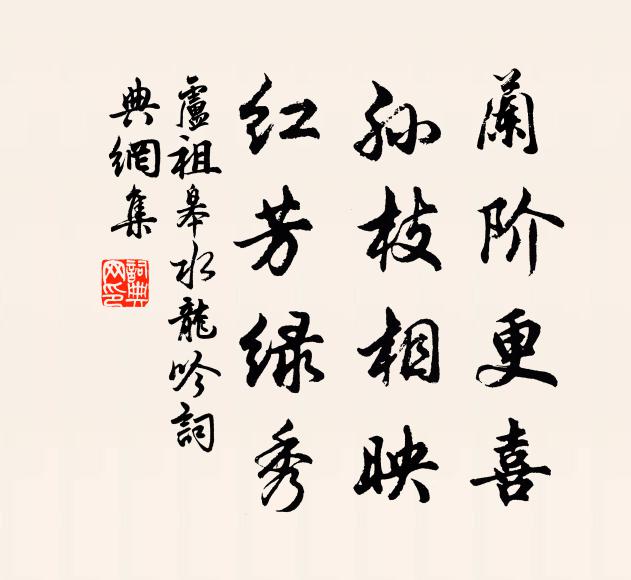 蘭阶更喜
孙枝相映
红芳绿秀
盧祖皋水龍吟詞
典網集
詞典网印